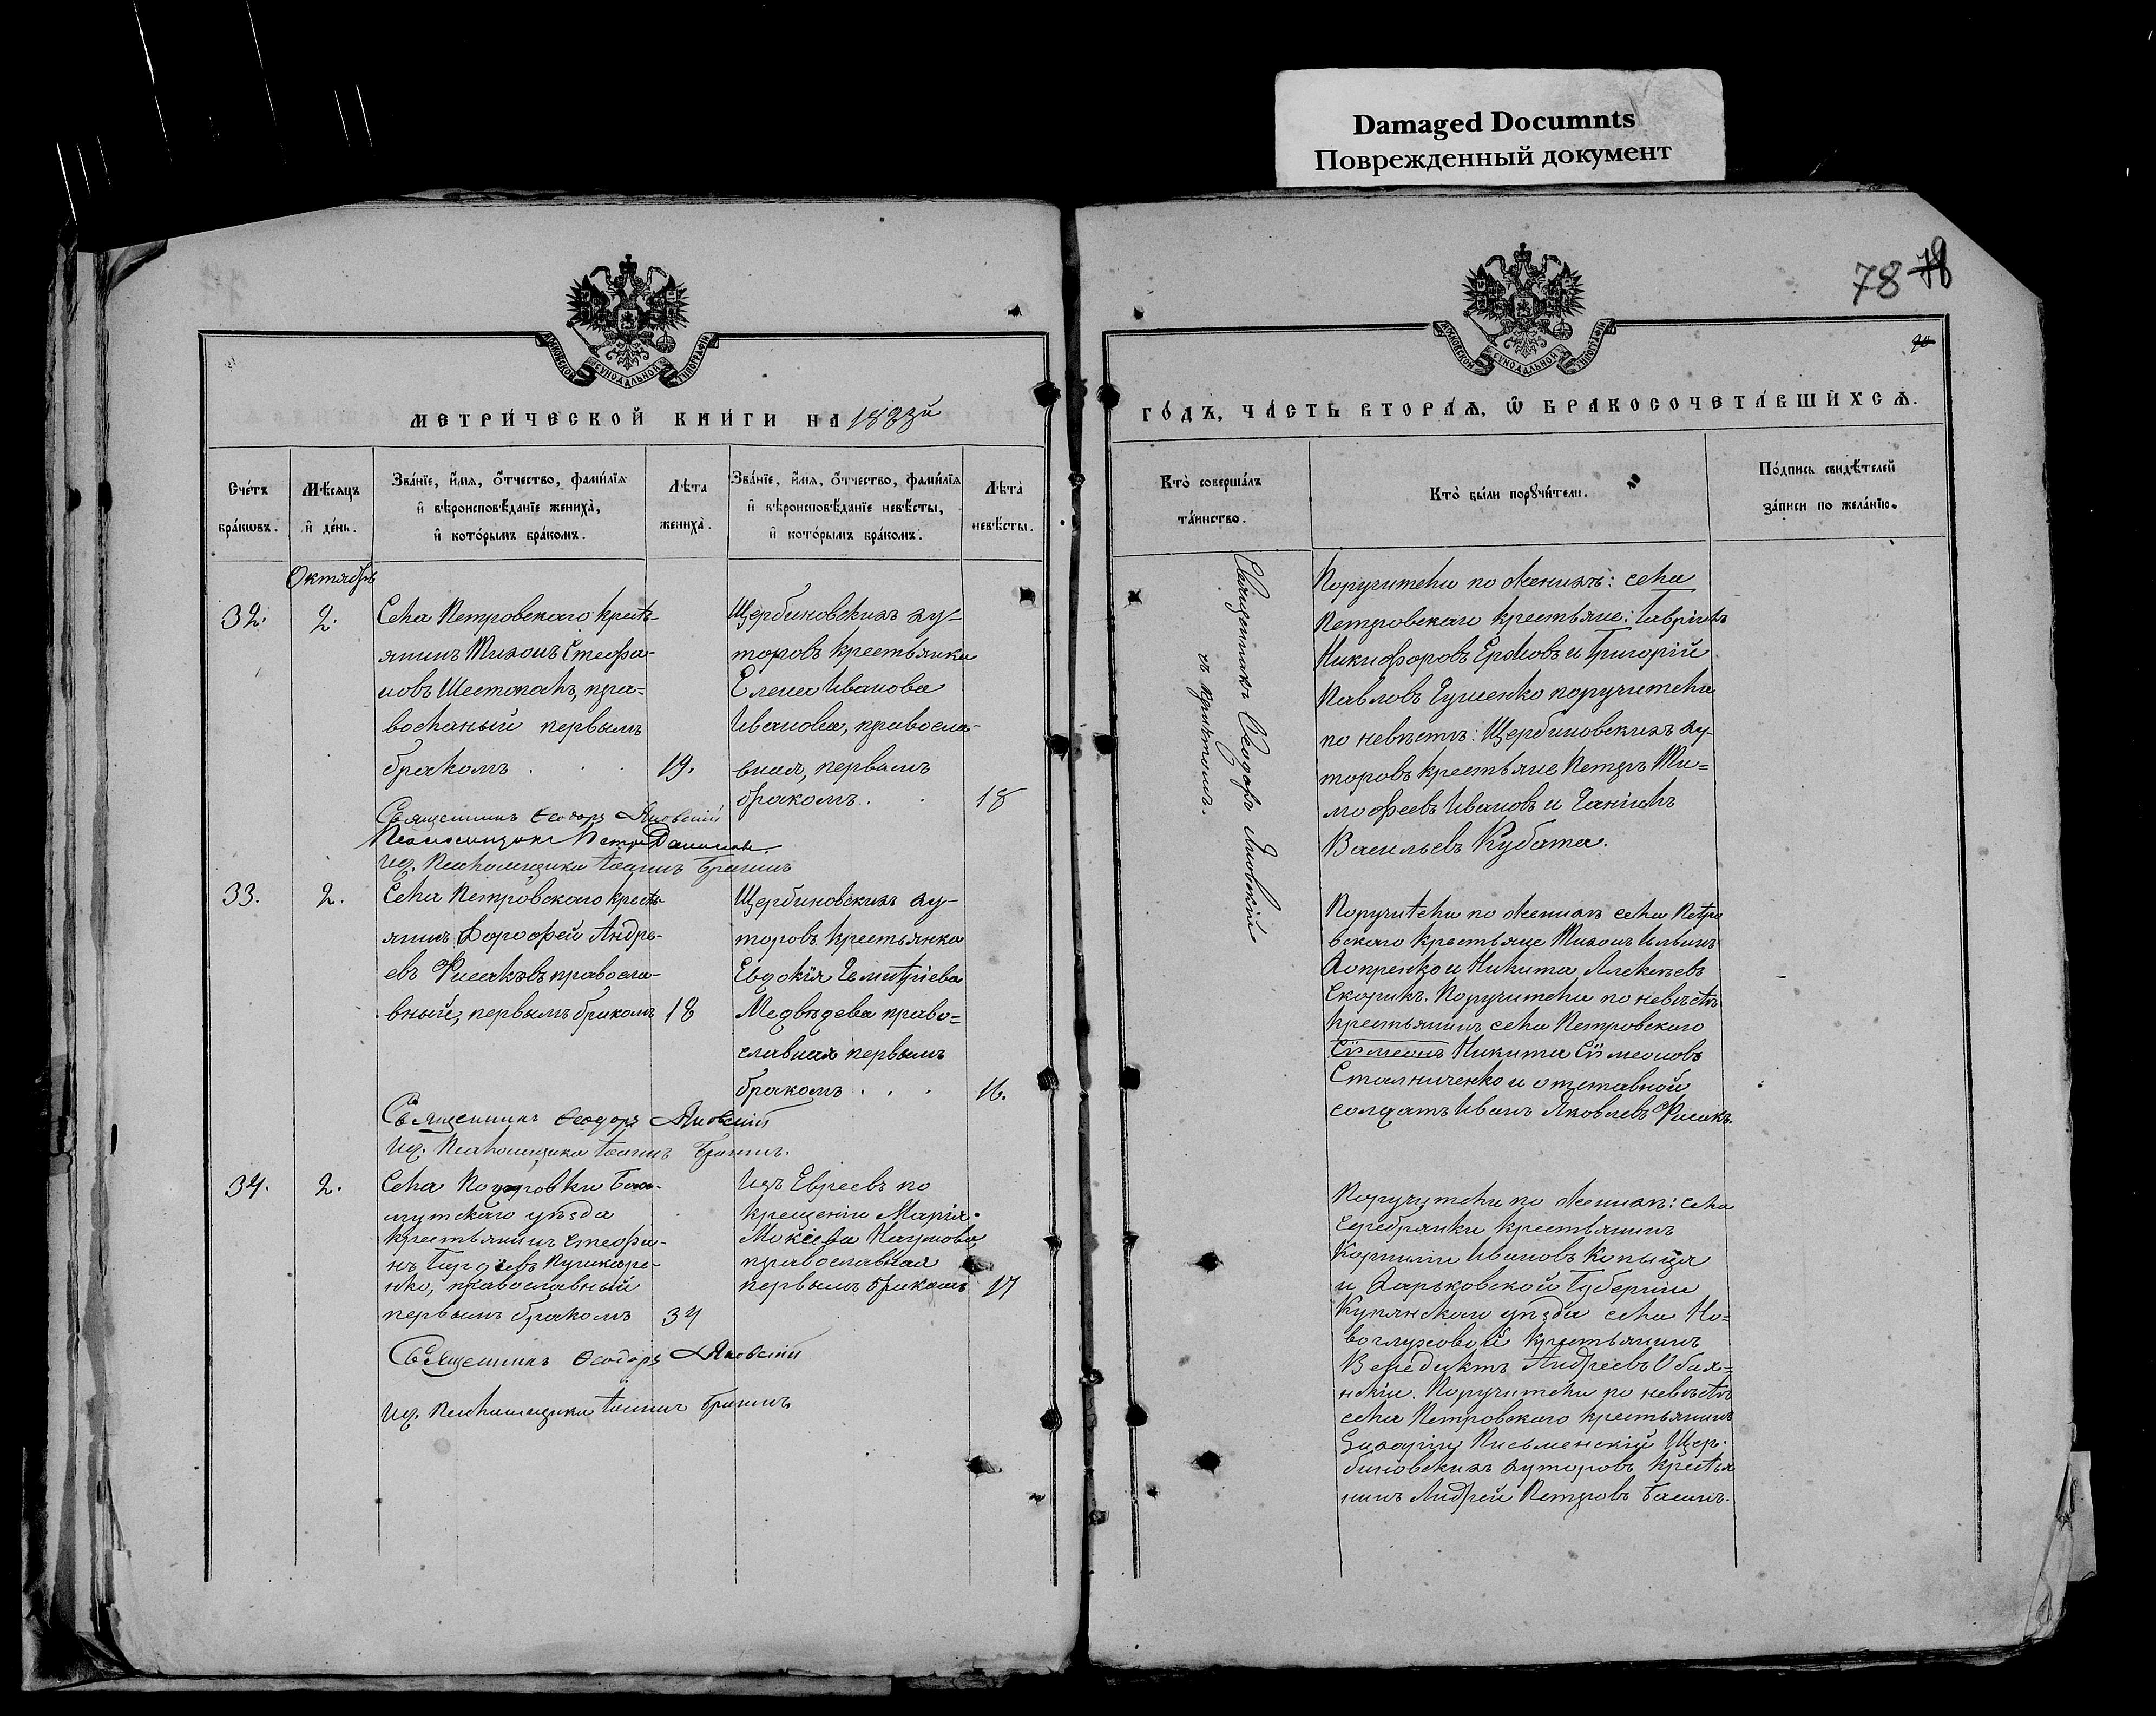 Damaged Documnts
Поврежденный документ
78 78
МЕТРИЧЕСКОЙ КНИГИ НА 1883й
Счетъ браковъ.
Мѣсяцъ и день.
Званіе, имя, отчество, фамилія
и вѣроисповѣданіе жениха,
и которымъ бракомъ.
Лѣта жениха.
Званіе, имя, отчество, фамилія
и вѣроисповѣданіе невѣсты,
и которымъ бракомъ.
Лѣта невѣсты.
Октябрь
32. 2.
Села Петровскаго кресть-
янинъ Тихонъ Стефа-
новъ Шестопалъ, пра-
вослвный первымъ
бракомъ . . . 19.
Щербиновскихъ ху-
торовъ крестьянка
Елена Иванова
Иванова, правосла-
вная, первымъ
бракомъ. . 18
Священникъ Ѳеодоръ Яновскій
Псаломщикъ Петръ
И. д. Псаломщика Іоаннъ
33. 2.
Села Петровскаго кресть-
янинъ Дорофей Андре-
евъ Фисакъвъ правосла-
вный, первымъ бракомъ 18
Щербиновскихъ ху-
торовъ крестьянка
Евдокія Димитріева
Медвѣдева право=
славная первымъ
бракомъ . . . 16.
Священникъ Ѳеодоръ Яновскій
И. д. Псаломщика Іоаннъ
34. 2.
Села Бах-
мутскаго уѣзда
крестьянинъ Стефа-
нъ Гордѣевъ Пушкаре-
нко, православный
первымъ бракомъ 34
Изъ Евреевъ по
крещеніи Марія
Мокіева Наумова
православная
первымъ бракомъ 17
Священникъ Ѳеодоръ Яновскій
И. д. Псаломщика Іоаннъ
ГОДЪ, ЧАСТЬ ВТОРАЯ, Ѿ БРАКОСОЧЕТАВШИХСЯ.
Кто совершалъ
таинство.
Кто были поручители.
Подпись свидѣтелей
записи по желанію.
Священникъ Ѳеодоръ Яновскій
съ причтомъ.
Поручители по женихѣ: села
Петровскаго крестьяне: Гавріилъ
Никифоровъ Ершовъ и Григорій
Павловъ Гуменко поручители
по невѣстѣ: Щербиновскихъ ху-
торовъ крестьяне Петръ Ти=
мофеевъ Ивановъ и Даніилъ
Васильевъ Кубата.
Поручители по женихѣ села Петро
вскаго крестьяне Тихонъ Ильинъ
и Никита Алексѣевъ
Скорикъ. Поручители по невѣстѣ
крестьянинъ села Петровскаго
Сѵмеонъ Никита Сѵмеоновъ
Стальниченко и отставной
солдатъ Иванъ Яковлевъ Фисакъ.
Поручители по женихѣ: села
Серебрянки крестьянинъ
Корнилій Ивановъ Копыця
и Харьковской Губерніи
Купянскаго уѣзда села Но=
воглуховой крестьянинъ
Венедиктъ Андреевъ Обая=
нскій. Поручители по невѣстѣ
села Петровскаго крестьянинъ
Захарій Письменскій Щер-
биновскихъ хуторовъ крестья
нинъ Андрей Петровъ Басинъ.